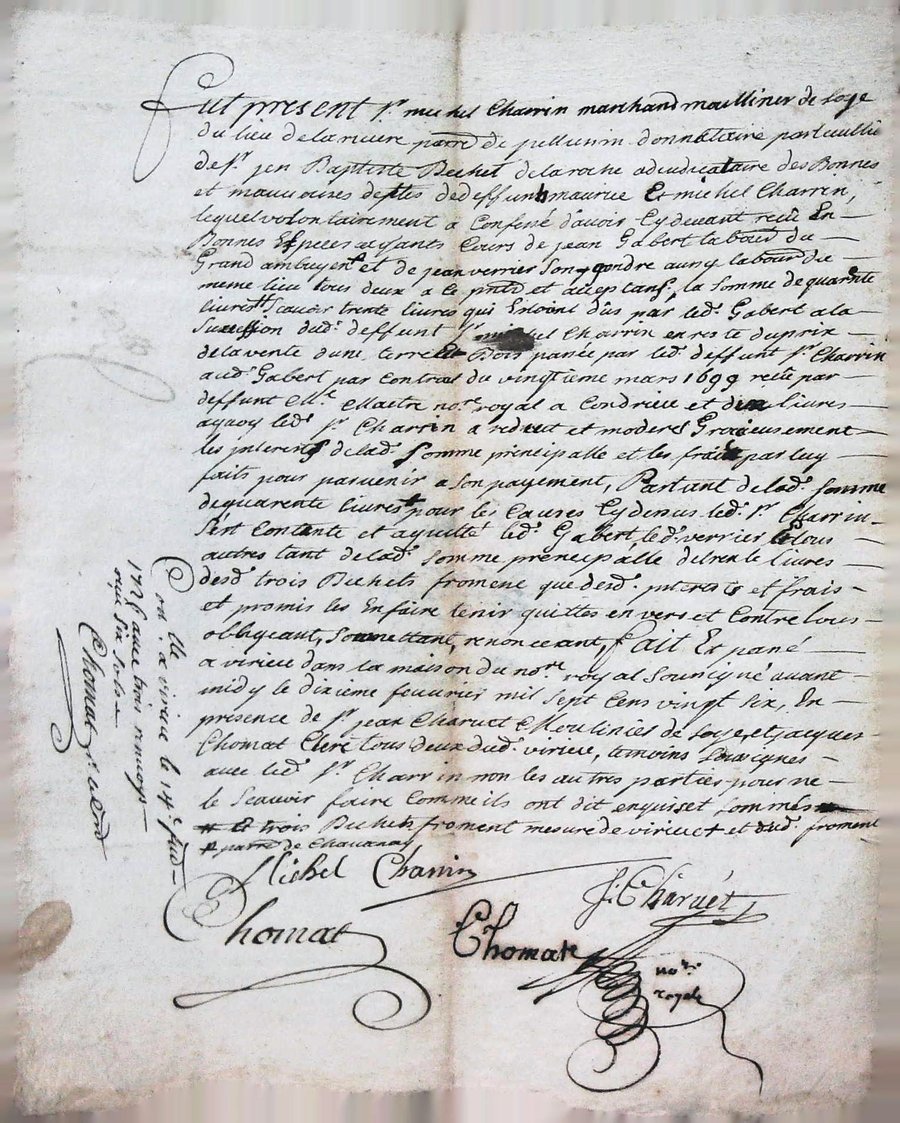 Fut present Sr. michel Charrin marchand moulliner de soye
du lieu de la riviere parre. de pellussin donnataire particullier
de Sr. jean Baptiste Bechet de la roche adiudicataire des Bonnes
et mauvoises deptes de deffunts maurice Et michel Charrin,
lequel volontairement a Confessé d'avoir Cy devant reçû En
Bonnes Espèces ayants Cours de jean Gabert labour. du
Grand ambuyent et de jean verrier Son gendre aussy labour. du
meme lieu tous deux a ce pnts et acceptans, la Somme de quarente
livres Scavoir trente livres qui Estoint dus par led. Gabert a la
Succession dud. deffunt Sr. michel Charrin en reste du prix
de la vente d'une terre et Bois passée par led. deffunt Sr. Charrin
aud. Gabert par Contrat du vingtieme mars 1699 reçû par
deffunt Me. no.re royal a Condrieu et dix livres
a quoy led. Sr. Charrin a reduit et moderé Gracieusement
les interests de lad. Somme principalle et les frais par luy
faits pour parvenir a Son payement, Partant de lad. Somme
de quarente livres pour les Causes Cy dessus led. Sr. Charrin
S'est Contanté et a quitté led. Gabert, led. verrier et tous
autres tant de lad. Somme principalle de trente livres
desd. trois Bichets froment que desd. interests et frais
et promis les En faire tenir quittes en vers et Contre tous
obligeant, Soumettant, renonceant, fait Et passé
a virieu dans la maison du no.re royal Soussigné avant
midy le dixieme fevvrier mil Sept Cens vingt Six, En
presence de Sr. jean Charvet Moulinier de Soye et jacques
Chomat Clerc tous deux dud. virieu, temoins Soussignes
avec led. Sr. Charrin non les autres parties pour ne
le Scavoir faire Comme ils ont dit enquis et Sommés
# Et trois Bichets froment mesure de virieu + et dud. froment
# parre. de Chavanay
Michel Charrin
J. Charvet
Chomat
Chomat
no.re
royal
Con.llé a virieu le 14e. fud.
1726 avec trois renvoys
reçu Six Sols
Chomat